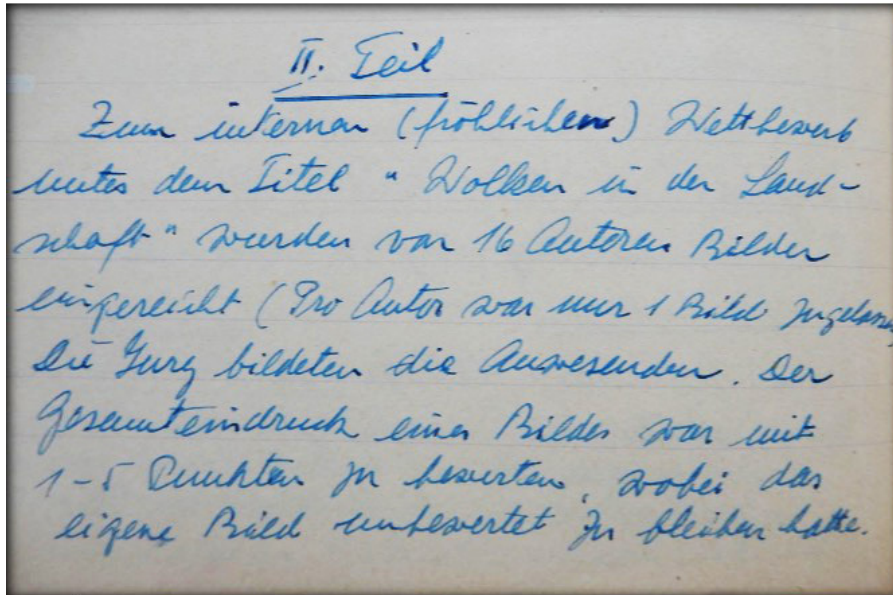 II. Teil
Zum internen (fröhlichen) Wettbewerb
unter dem Titel "Wolken in der Land-
schaft" wurden von 16 Autoren Bilder
eingereicht (Pro Autor war nur 1 Bild zugelassen)
Die Jury bildeten die Anwesenden. Der
Gesamteindruck eines Bildes war mit
1-5 Punkten zu bewerten, wobei das
eigene Bild unbewertet zu bleiben hatte.